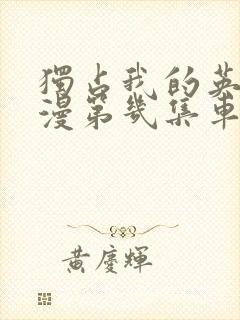 獨占我的英
漫第幾集車
黃慶輝